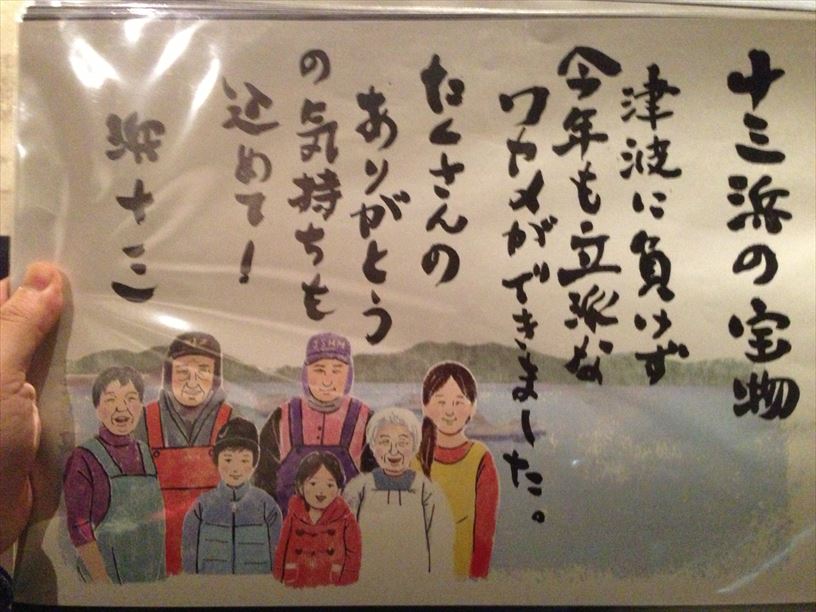 十三浜の宝物
津波に負けず
今年も立派な
ワカメができました。
たくさんの
ありがとう
の気持ちも
込めて！
浜十三